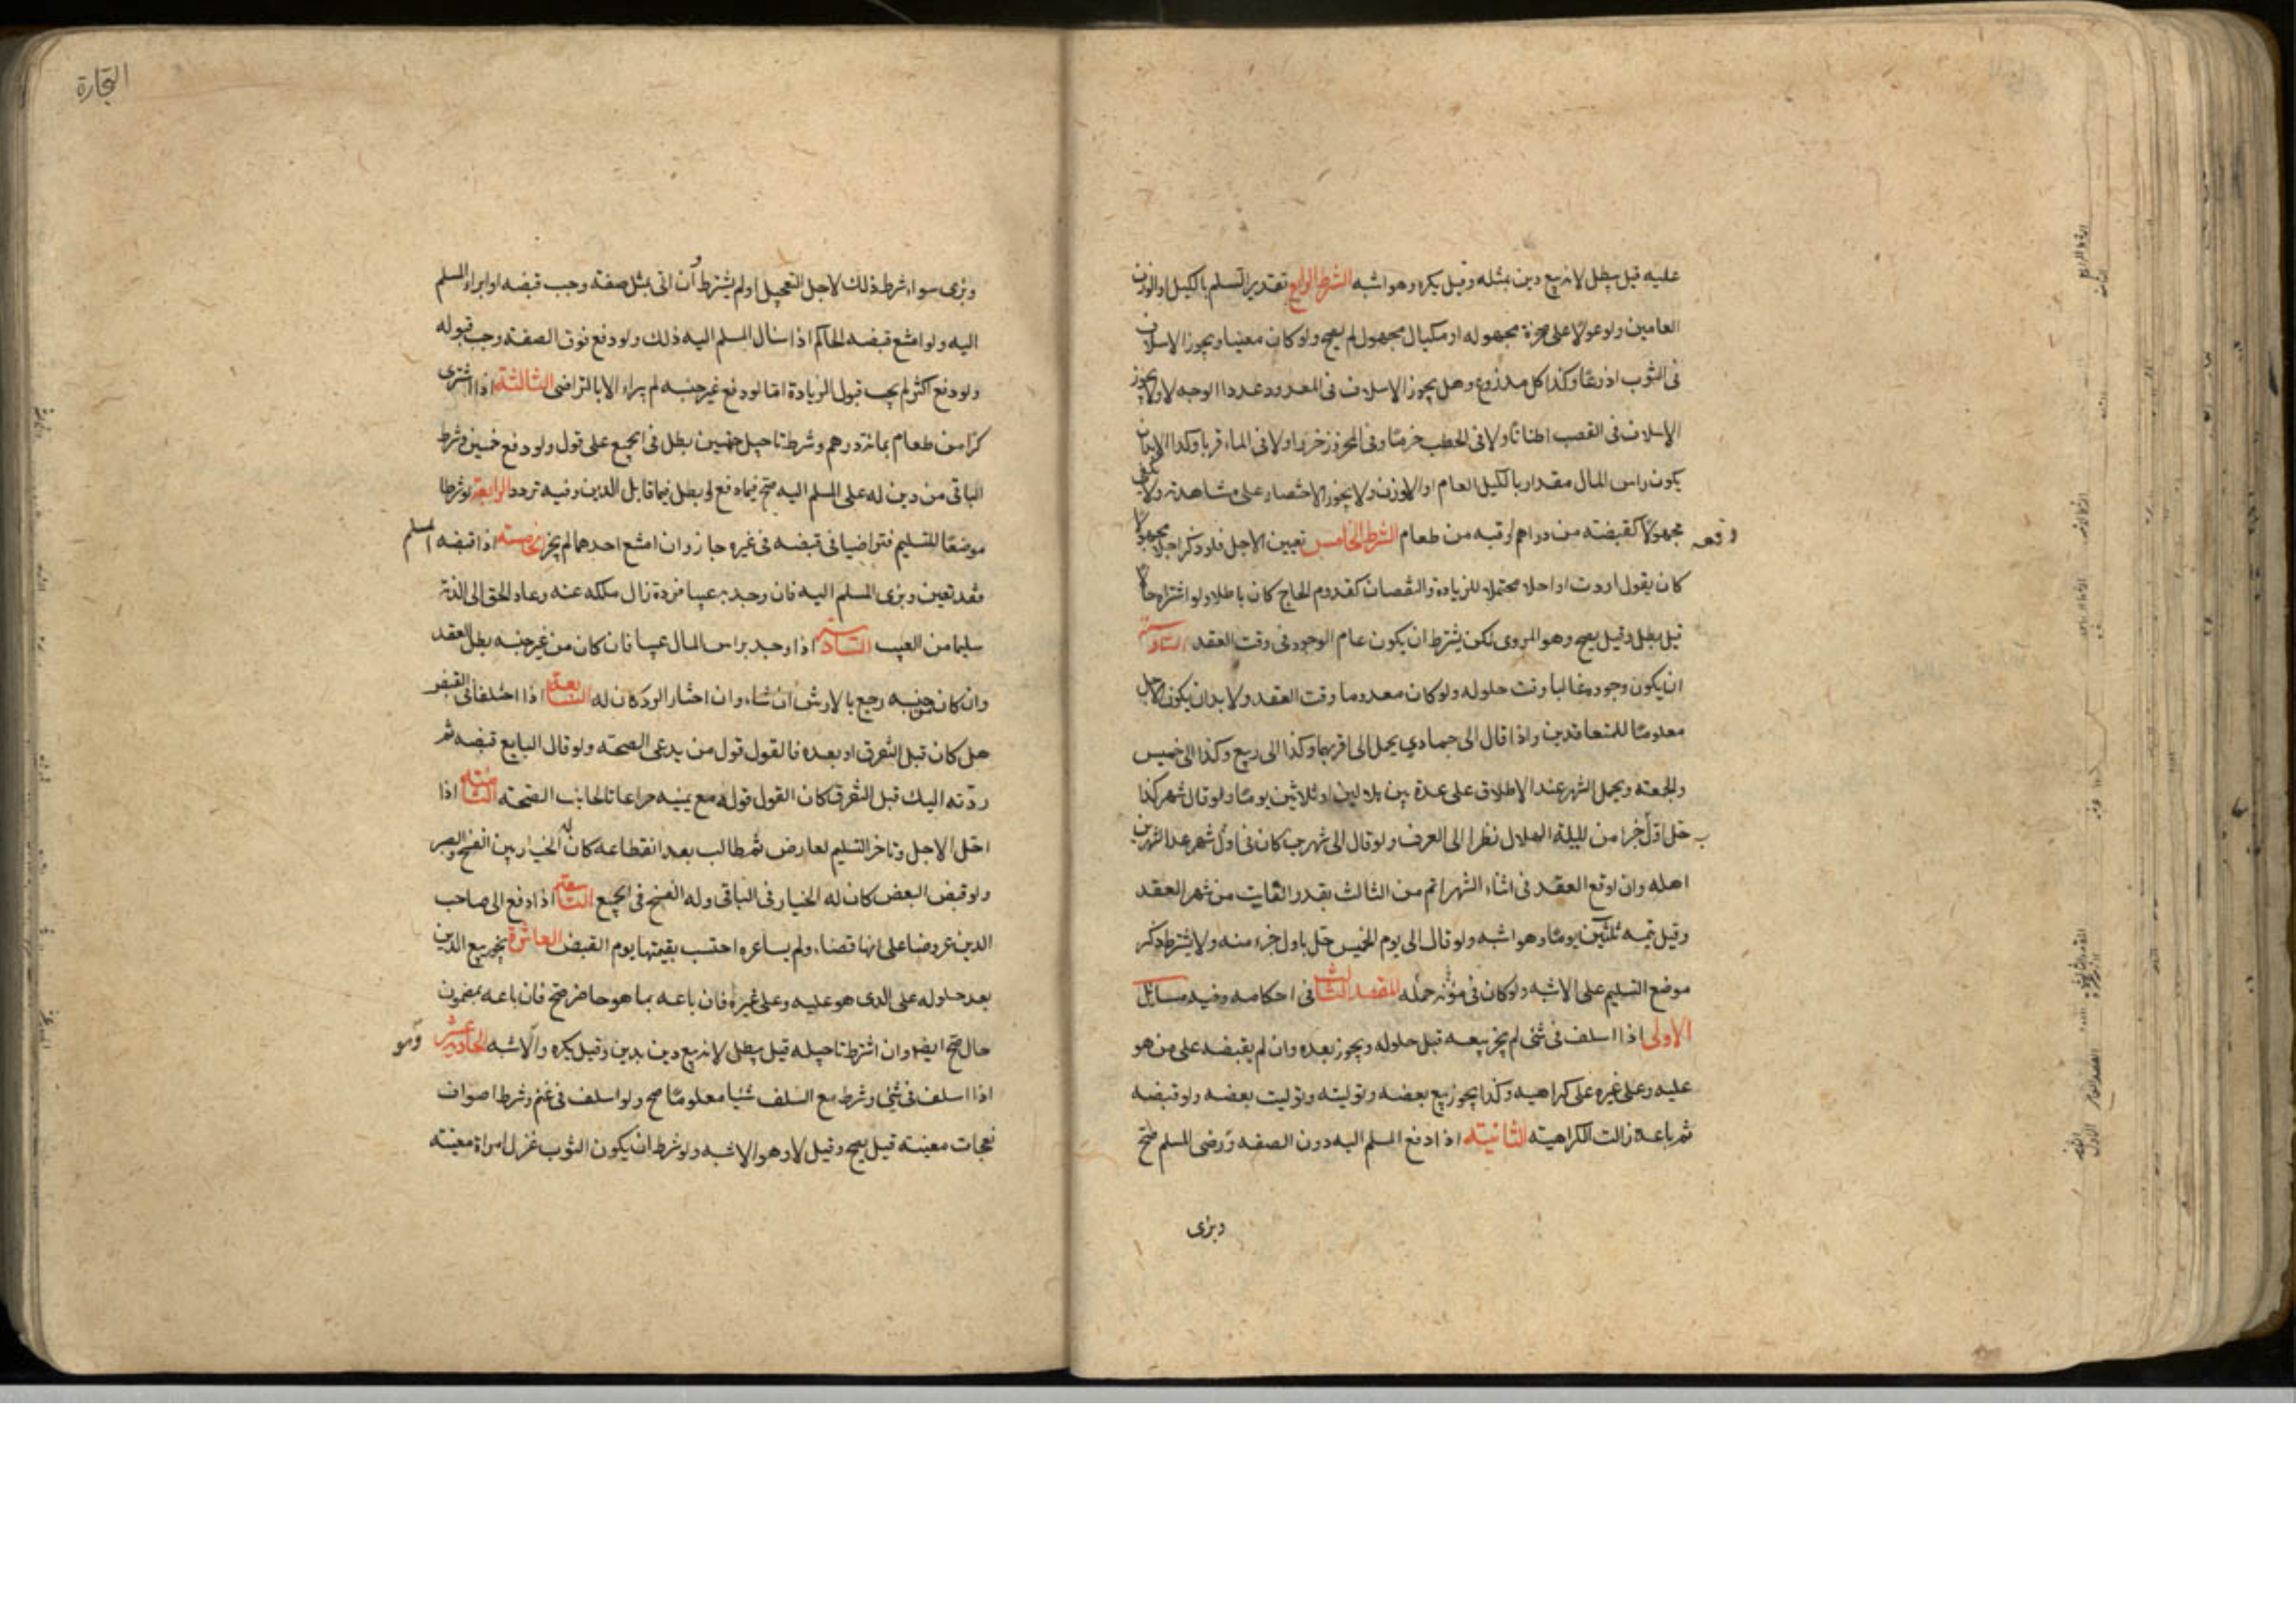 عليه قيل يبطل لانه بيع دين بمثله وقيل يكره وهو اشبه الشرط الرابع تقدير السلم بالكيل او الوزن
العامين ولو عولا على صخرة مجهوله او مكيال مجهول لم يصح ولو كان معينا ويجوز الاسلاف
فى الثوب اذرعًا وكذا كل مذروع وهل يجوز الاسلاف فى المعدود عددا الوجه لا ولا يجوز
الاسلاف فى القصب اطنانًا ولا فى الحطب حزمًا ولا فى الماء قربا وكذا لابد ان
يكون راس المال مقدارا بالكيل العام او الوزن ولا يجوز الاختصار على مشاهدته ولا
مجهولًا كقبضته من دراهم او قبه من طعام الشرط الخامس تعيين الاجل فلو ذكر اجلا مجهولًا
وقعه
كان يقول اردت او اجلا محتملا للزيادة والنقصان كقدوم الحاج كان باطلا ولو اشتراه حالًا
قيل يبطل وقيل يصح وهو المروى لكن يشترط ان يكون عام الوجود فى وقت العقد السادس
ان يكون وجوده غالبا وقت حلوله ولو كان معدوما وقت العقد ولا بد ان يكون الاجل
معلومًا للمتعاقدين واذا قال الى جمادي يحمل الى اقربهما وكذا الى ربيع وكذا الى خميس
والجمعته ويحمل الشهر عند الاطلاق على عدة بين هلالين او ثلاثين يومًا ولو قال شهر كذا
حل اول جزا من لليلة الهلال نظرا الى العرف ولو قال الى شهرين كان فى اول شهر عد الشهرين
اهله وان اوقع العقد فى اثناء الشهر اتم من الثالث بقدر الفايت من شهر العقد
وقيل يتمه ثلثين يومًا وهو اشبه ولو قال الى يوم الخميس حل باول جزء منه ولا يشترط ذكر
موضع التسليم على الاشبه ولو كان فى مؤنه حمله المقصد الثالث فى احكامه وفيه مسايل
الاولى اذا اسلف فى شئ لم يجز بيعه قبل حلوله ويجوز بعده وان لم يقبضه على من هو
عليه وعلى غيره على كراهيه وكذا يجوز بيع بعضه وتوليته وتوليت بعضه ولو قبضه
ثم باعه زالت الكراهيته الثانيته اذا دفع المسلم اليه دون الصفه ورضى المسلم صح
وبرى
التجارة
وبرى سواء شرط ذلك لاجل التعجيل او لم يشترط وان اتى بمثل صفته وجب قبضه او ابراء المسلم
اليه ولو امتنع قبضه الحاكم اذا سال المسلم اليه ذلك ولو دفع فوق الصفه وجب قبوله
ولو دفع اكثر لم يجب قبول الزيادة امّا لو دفع غير جنسه لم يبراء الا بالتراضى الثالثة اذا اشترى
كرًا من طعام بمائة درهم وشرط تاجيل خمسين بطل فى الجميع على قول ولو دفع خمسين وشرط
الباقى من دين له على المسلم اليه صح فيما دفع وبطل فيما قابل الدين وفيه تردد الرابعة لو شرطا
موضعًا للتسليم فتراضيا فى قبضه فى غيره جاز وان امتنع احدهما لم يجز الخامسته اذا قبضه المسلم
فقد تعين وبرى المسلم اليه فان وجد به عيبا فرده زال ملكه عنه وعاد الحق الى الذمة
سليما من العيب السادسته اذا وجد براس المال عيبا فان كان من غير جنسه بطل العقد
وان كان من جنسه رجع بالارش ان شاء وان اختار الرد كان له السابعه اذا اختلفا فى القبض
هل كان قبل التفرق او بعده فالقول قول من يدعى الصحته ولو قال البايع قبضه ثم
ردّته اليك قبل التفرق كان القول قوله مع يمينه مراعاتا لجانب الصحته الثامنته اذا
احلّ الاجل وتاخر التسليم لعارض ثم طالب بعد انقطاعه كان له الخيار بين الفسخ والصبر
ولو قبض البعض كان له الخيار فى الباقى وله الفسخ فى الجميع التاسعته اذا دفع الى صاحب
الدين عروضا على انها قضاء ولم يساعره احتسب بقيمتها يوم القبض العاشرة يجوز بيع الدين
بعد حلوله على الذى هو عليه وعلى غيره فان باعه بما هو حاضر صح فان باعه بمضمون
حال صح ايضا وان اشترط تاجيله قيل يبطل لانه بيع دين بدين وقيل يكره والاشبه الحادية عشر
وهو
اذا اسلف فى شئ وشرط مع السلف شئيا معلومًا صح ولو اسلف فى غنم وشرط اصواف
نعجات معينته قيل يصح وقيل لا وهو الاشبه ولو شرط ان يكون الثوب غزل امراة معينته